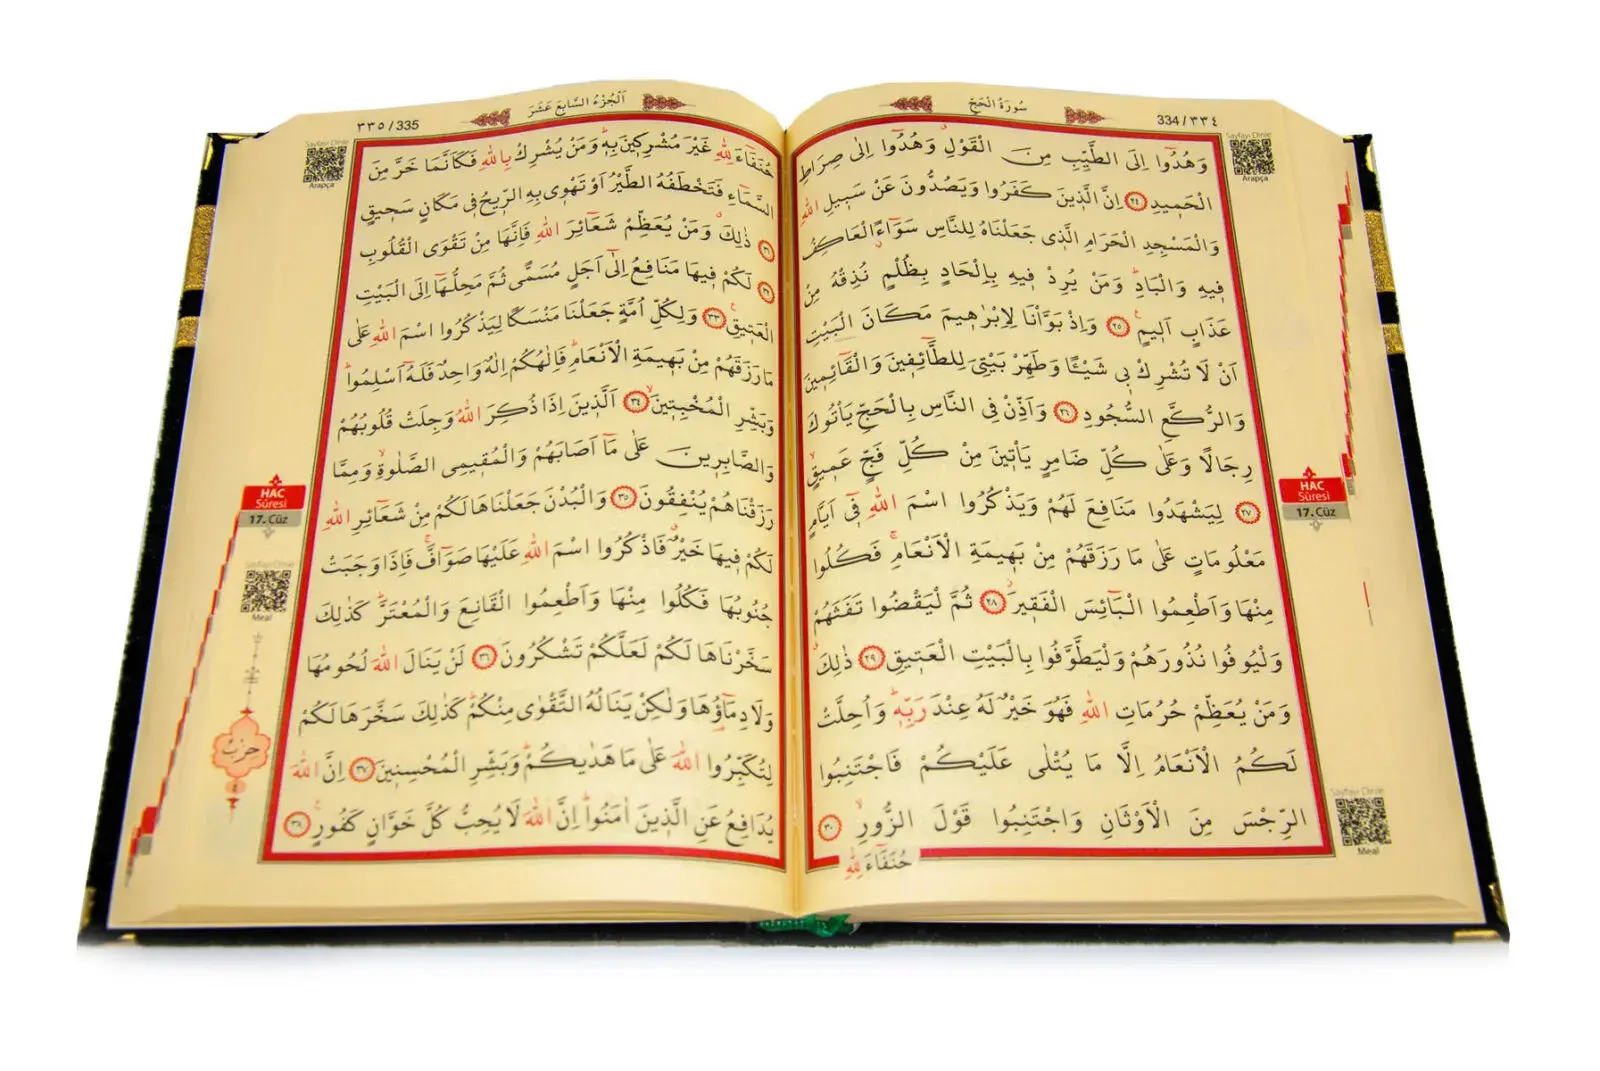 سُورَةُ الْحَجّ
334 / ٣٣٤
وَهُدُٓوا اِلَى الطَّيِّبِ مِنَ الْقَوْلِۚ وَهُدُٓوا اِلٰى صِرَاطِ
الْحَم۪يدِ ﴿٢٤﴾ اِنَّ الَّذ۪ينَ كَفَرُوا وَيَصُدُّونَ عَنْ سَب۪يلِ اللّٰهِ
وَالْمَسْجِدِ الْحَرَامِ الَّذ۪ي جَعَلْنَاهُ لِلنَّاسِ سَوَٓاءًۨ الْعَاكِفُ
ف۪يهِ وَالْبَادِۜ وَمَنْ يُرِدْ ف۪يهِ بِاِلْحَادٍ بِظُلْمٍ نُذِقْهُ مِنْ
عَذَابٍ اَل۪يمٍ۟ ﴿٢٥﴾ وَاِذْ بَوَّأْنَا لِاِبْرٰه۪يمَ مَكَانَ الْبَيْتِ
اَنْ لَا تُشْرِكْ ب۪ي شَيْـًٔا وَطَهِّرْ بَيْتِيَ لِلطَّٓائِف۪ينَ وَالْقَٓائِم۪ينَ
وَالرُّكَّعِ السُّجُودِ ﴿٢٦﴾ وَاَذِّنْ فِي النَّاسِ بِالْحَجِّ يَأْتُوكَ
رِجَالًا وَعَلٰى كُلِّ ضَامِرٍ يَأْت۪ينَ مِنْ كُلِّ فَجٍّ عَم۪يقٍۙ
﴿٢٧﴾ لِيَشْهَدُوا مَنَافِعَ لَهُمْ وَيَذْكُرُوا اسْمَ اللّٰهِ ف۪ٓي اَيَّامٍ
مَعْلُومَاتٍ عَلٰى مَا رَزَقَهُمْ مِنْ بَه۪يمَةِ الْاَنْعَامِۚ فَكُلُوا
مِنْهَا وَاَطْعِمُوا الْبَٓائِسَ الْفَق۪يرَۘ ﴿٢٨﴾ ثُمَّ لْيَقْضُوا تَفَثَهُمْ
وَلْيُوفُوا نُذُورَهُمْ وَلْيَطَّوَّفُوا بِالْبَيْتِ الْعَت۪يقِ ﴿٢٩﴾ ذٰلِكَۗ
وَمَنْ يُعَظِّمْ حُرُمَاتِ اللّٰهِ فَهُوَ خَيْرٌ لَهُ عِنْدَ رَبِّه۪ۜ وَاُحِلَّتْ
لَكُمُ الْاَنْعَامُ اِلَّا مَا يُتْلٰى عَلَيْكُمْ فَاجْتَنِبُوا
الرِّجْسَ مِنَ الْاَوْثَانِ وَاجْتَنِبُوا قَوْلَ الزُّورِۙ ﴿٣٠﴾
حُنَفَٓاءَ لِلّٰهِ
Sayfayı Dinle
Arapça
HAC
Sûresi
17. Cüz
Sayfayı Dinle
Meal
٣٣٥ / 335
اَلْجُزْءُ السَّابِعَ عَشَرَ
حُنَفَٓاءَ لِلّٰهِ غَيْرَ مُشْرِك۪ينَ بِه۪ۜ وَمَنْ يُشْرِكْ بِاللّٰهِ فَكَاَنَّمَا خَرَّ مِنَ
السَّمَٓاءِ فَتَخْطَفُهُ الطَّيْرُ اَوْ تَهْو۪ي بِهِ الرّ۪يحُ ف۪ي مَكَانٍ سَح۪يقٍ
﴿٣١﴾ ذٰلِكَۗ وَمَنْ يُعَظِّمْ شَعَٓائِرَ اللّٰهِ فَاِنَّهَا مِنْ تَقْوَى الْقُلُوبِ
﴿٣٢﴾ لَكُمْ ف۪يهَا مَنَافِعُ اِلٰٓى اَجَلٍ مُسَمًّى ثُمَّ مَحِلُّهَٓا اِلَى الْبَيْتِ
الْعَت۪يقِ۟ ﴿٣٣﴾ وَلِكُلِّ اُمَّةٍ جَعَلْنَا مَنْسَكًا لِيَذْكُرُوا اسْمَ اللّٰهِ عَلٰى
مَا رَزَقَهُمْ مِنْ بَه۪يمَةِ الْاَنْعَامِۜ فَاِلٰهُكُمْ اِلٰهٌ وَاحِدٌ فَلَهُٓ اَسْلِمُواۜ
وَبَشِّرِ الْمُخْبِت۪ينَۙ ﴿٣٤﴾ اَلَّذ۪ينَ اِذَا ذُكِرَ اللّٰهُ وَجِلَتْ قُلُوبُهُمْ
وَالصَّابِر۪ينَ عَلٰى مَٓا اَصَابَهُمْ وَالْمُق۪يمِي الصَّلٰوةِۙ وَمِمَّا
رَزَقْنَاهُمْ يُنْفِقُونَ ﴿٣٥﴾ وَالْبُدْنَ جَعَلْنَاهَا لَكُمْ مِنْ شَعَٓائِرِ اللّٰهِ
لَكُمْ ف۪يهَا خَيْرٌۗ فَاذْكُرُوا اسْمَ اللّٰهِ عَلَيْهَا صَوَٓافَّۚ فَاِذَا وَجَبَتْ
جُنُوبُهَا فَكُلُوا مِنْهَا وَاَطْعِمُوا الْقَانِعَ وَالْمُعْتَرَّۜ كَذٰلِكَ
سَخَّرْنَاهَا لَكُمْ لَعَلَّكُمْ تَشْكُرُونَ ﴿٣٦﴾ لَنْ يَنَالَ اللّٰهَ لُحُومُهَا
وَلَا دِمَٓاؤُ۬هَا وَلٰكِنْ يَنَالُهُ التَّقْوٰى مِنْكُمْۜ كَذٰلِكَ سَخَّرَهَا لَكُمْ
لِتُكَبِّرُوا اللّٰهَ عَلٰى مَا هَدٰيكُمْۜ وَبَشِّرِ الْمُحْسِن۪ينَ ﴿٣٧﴾ اِنَّ اللّٰهَ
يُدَافِعُ عَنِ الَّذ۪ينَ اٰمَنُواۜ اِنَّ اللّٰهَ لَا يُحِبُّ كُلَّ خَوَّانٍ كَفُورٍ۟ ﴿٣٨﴾
Sayfayı Dinle
Arapça
HAC
Sûresi
17. Cüz
Sayfayı Dinle
Meal
حزب